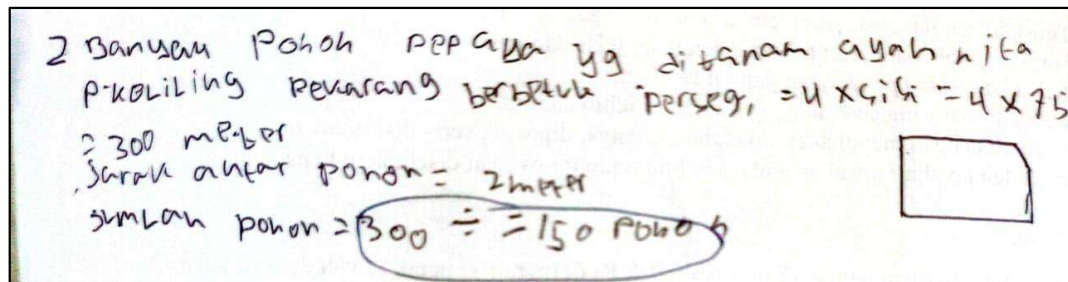 2 Banyau Pohoh pepaya yg ditanam ayah nita
P. keliling pekarang berbetuk persegi = 4 x sisi = 4 x 75
= 300 meter
Jarak antar pohon = 2 meter
Jumlah pohon = 300 ÷ = 150 Pohoh